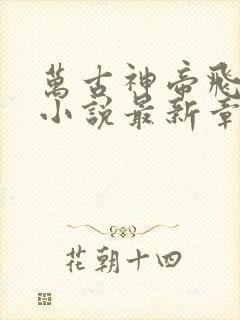 萬古神帝飛
小說最新章
花朝十四